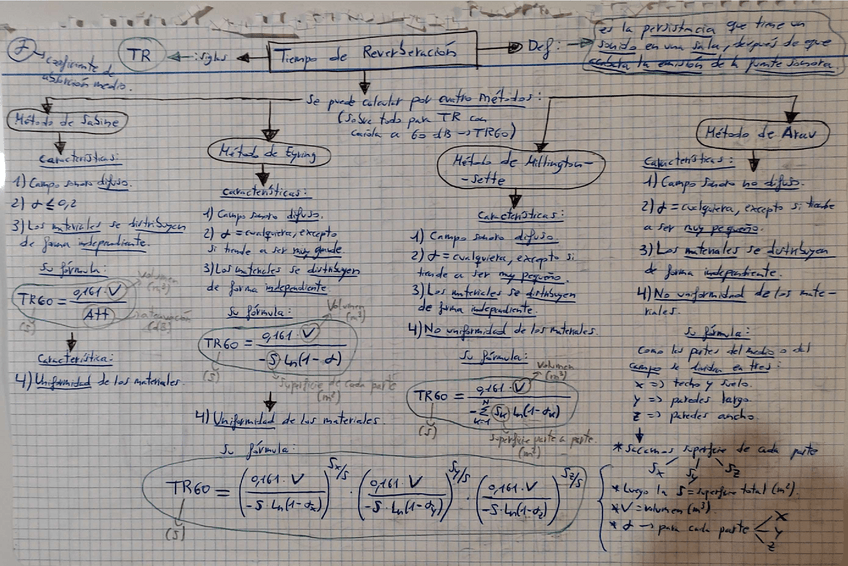 α → coeficiente de absorción medio.
TR ← siglas ← Tiempo de Reverberación → Def: →
es la persistencia que tiene un
sonido en una sala, después de que
acabara la emisión de la fuente sonora.
Se puede calcular por cuatro métodos:
(Sobre todo para TR con
caída a 60 dB → TR60)
Método de Sabine
Características:
1) Campo sonoro difuso.
2) α ≤ 0,2
3) Los materiales se distribuyen
de forma independiente.
Su fórmula:
TR60 = 0,161 · V / Att
Volumen (m³)
atenuación (dB)
(s)
Característica:
4) Uniformidad de los materiales.
Método de Eyring
Características:
1) Campo sonoro difuso.
2) α = cualquiera, excepto
si tiende a ser muy grande
3) Los materiales se distribuyen
de forma independiente.
Su fórmula:
TR60 = 0,161 · V / -S · Ln(1-α)
Volumen (m³)
(s)
superficie de cada parte
(m²)
4) Uniformidad de los materiales.
Método de Millington-
-Sette
Características:
1) Campo sonoro difuso.
2) α = cualquiera, excepto si
tiende a ser muy pequeño.
3) Los materiales se distribuyen
de forma independiente.
4) No uniformidad de los materiales.
Su fórmula:
TR60 = 0,161 · V / -∑ᴺₖ₌₁ Sₖ Ln(1-αₖ)
Volumen (m³)
(s)
superficie parte a parte.
(m²)
Método de Arau
Características:
1) Campo sonoro no difuso.
2) α = cualquiera, excepto si tiende
a ser muy pequeño.
3) Los materiales se distribuyen
de forma independiente.
4) No uniformidad de los mate-
riales.
Su fórmula:
Como las partes del medio o del
campo se dividen en tres:
x => techo y suelo.
y => paredes largo.
z => paredes ancho.
* Sacamos superficie de cada parte
Sx Sy Sz
* Luego la S = superficie total (m²).
* V = volumen (m³)
* α → para cada parte x y z
Su fórmula:
TR60 = (0,161 · V / -S · Ln(1-αx))^Sx/S · (0,161 · V / -S · Ln(1-αy))^Sy/S · (0,161 · V / -S · Ln(1-αz))^Sz/S
(s)